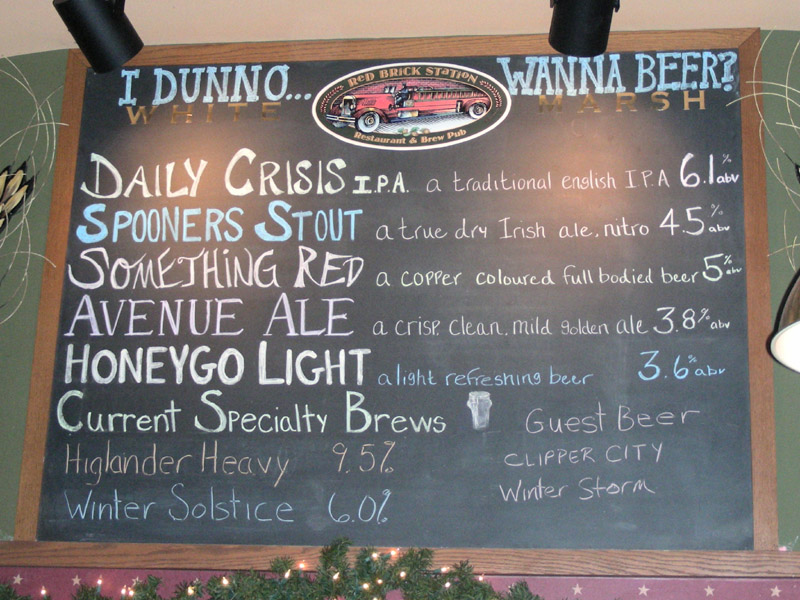 I DUNNO... WANNA BEER?
WHITE MARSH
RED BRICK STATION
Restaurant & Brew Pub
DAILY CRISIS I.P.A. a traditional english I.P.A 6.1% abv
SPOONERS STOUT a true dry Irish ale, nitro 4.5% abv
SOMETHING RED a copper coloured full bodied beer 5% abv
AVENUE ALE a crisp, clean, mild golden ale 3.8% abv
HONEYGO LIGHT a light refreshing beer 3.6% abv
Current Specialty Brews
Higlander Heavy 9.5%
Winter Solstice 6.0%
Guest Beer
CLIPPER CITY
Winter Storm